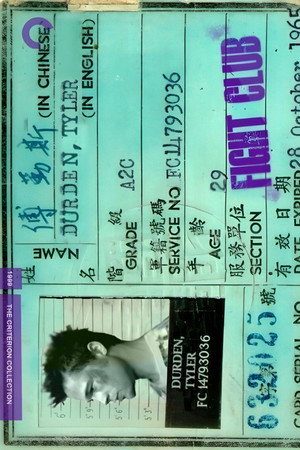 傅勒斯 (IN CHINESE)
NAME DURDEN, TYLER
(IN ENGLISH)
姓名
階級
GRADE A2C
軍籍號碼
SERVICE NO FC14793036
年齡
AGE 29
服務單位
SECTION FIGHT CLUB
有效日期
EXPIRED 28 October 1965
號
632025
SERIAL NO
DURDEN,
TYLER
FC 14793036
5'6"
1999 THE CRITERION COLLECTION